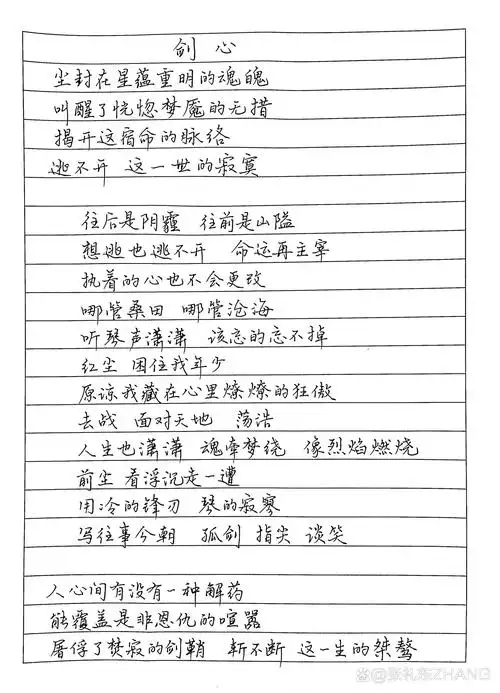 剑心
尘封在星蕴重明的魂魄
叫醒了恍惚梦魇的无措
揭开这宿命的脉络
逃不开 这一世的寂寞
往后是阴霾 往前是山隘
想逃也逃不开 命运再主宰
执着的心也不会更改
哪管桑田 哪管沧海
听琴声潇潇 该忘的忘不掉
红尘 困住我年少
原谅我藏在心里燎燎的狂傲
去战 面对天地 荡浩
人生也潇潇 魂牵梦绕 像烈焰燃烧
前尘 看浮沉走一遭
用冷的锋刃 琴的寂寥
写往事今朝 孤剑 指尖 谈笑
人心间有没有一种解药
能覆盖是非恩仇的喧嚣
屠俘了焚寂的剑鞘 斩不断 这一生的桀骜
@张礼东ZHANG